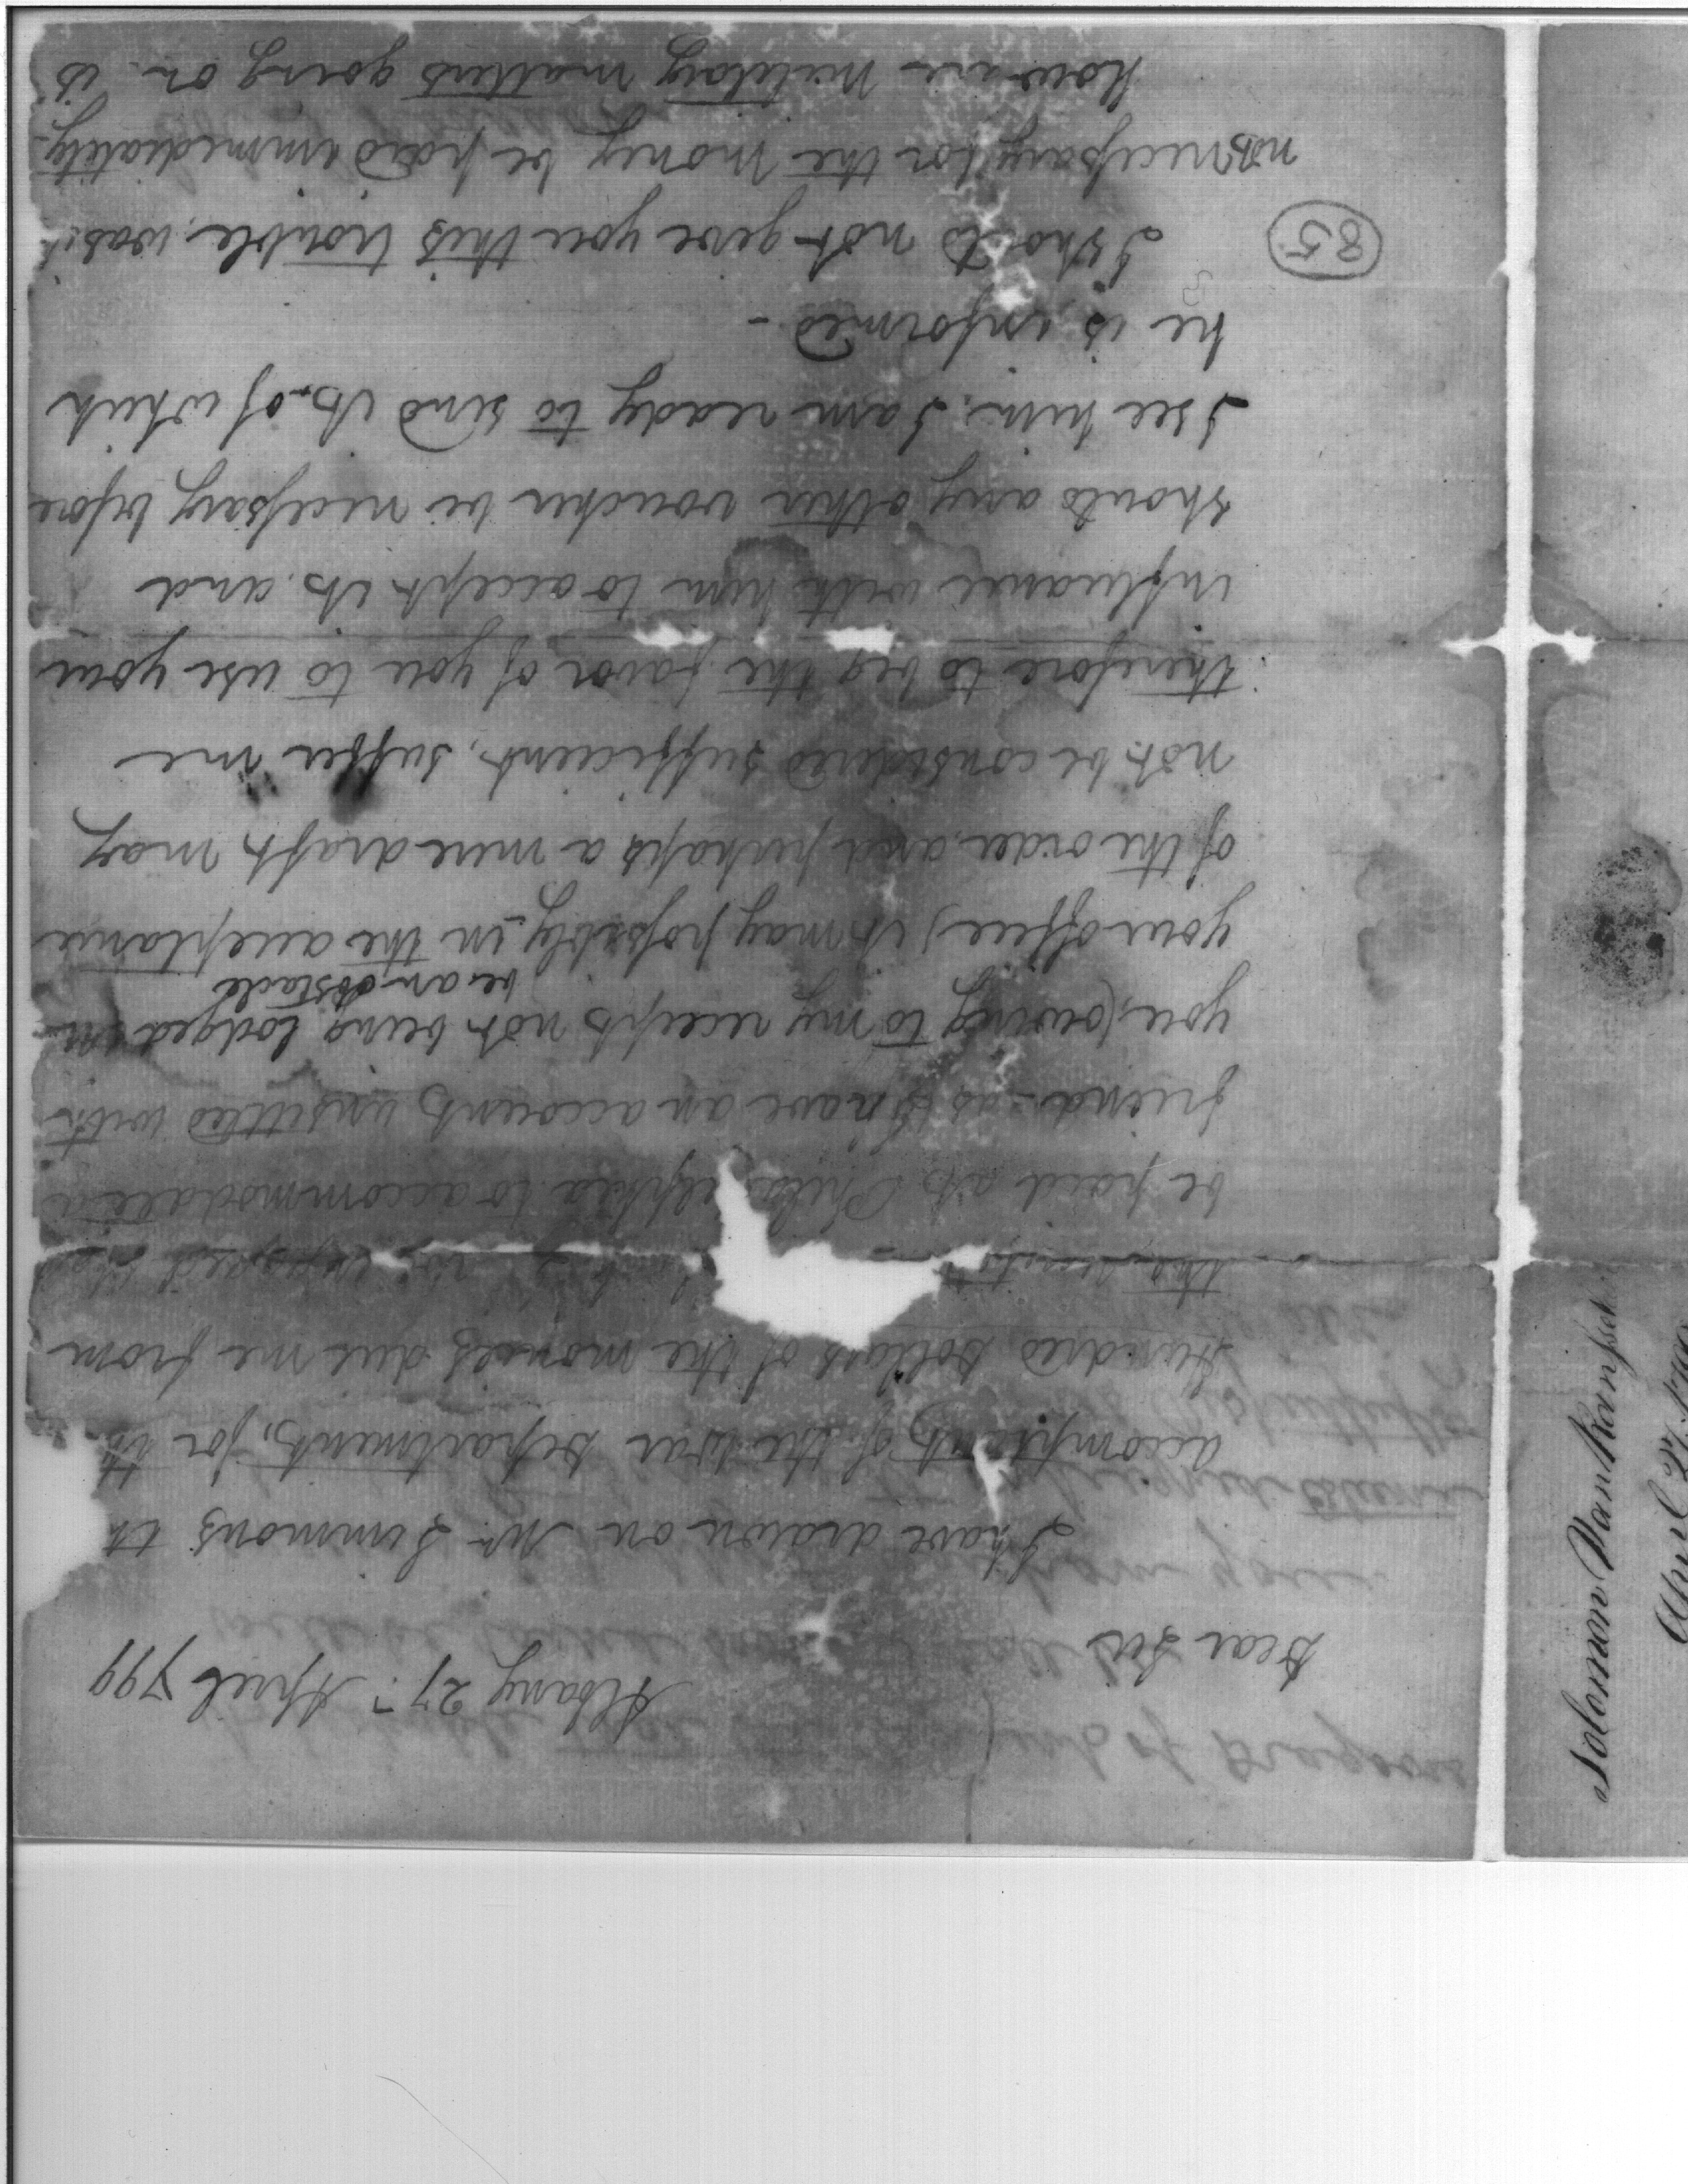 Albany 27th April 799
Dear Sir
I have drawn on Mr. Simmons th
accomptant of the War Department, for t
Hundred Dollars of the monies due me from
be paid at Philadelphia to accommodate a
friend - as I have an account unsettled with
you, (owing to my receipts not being lodged in
be an obstacle
your office,) it may possibly - in the acceptance
of the order, and perhaps a mere draft may
not be considered sufficient, suffer me
therefore to beg the favor of you to use your
influance with him to accept it, and
should any other voucher be necessary before
I see him, I am ready to send it - of which
he is informed -
I should not give you this trouble, was it
not necessary for the money be paid immediately -
How are military matters going on is
85
Solomon Van Rensselaer
April 27, 1799